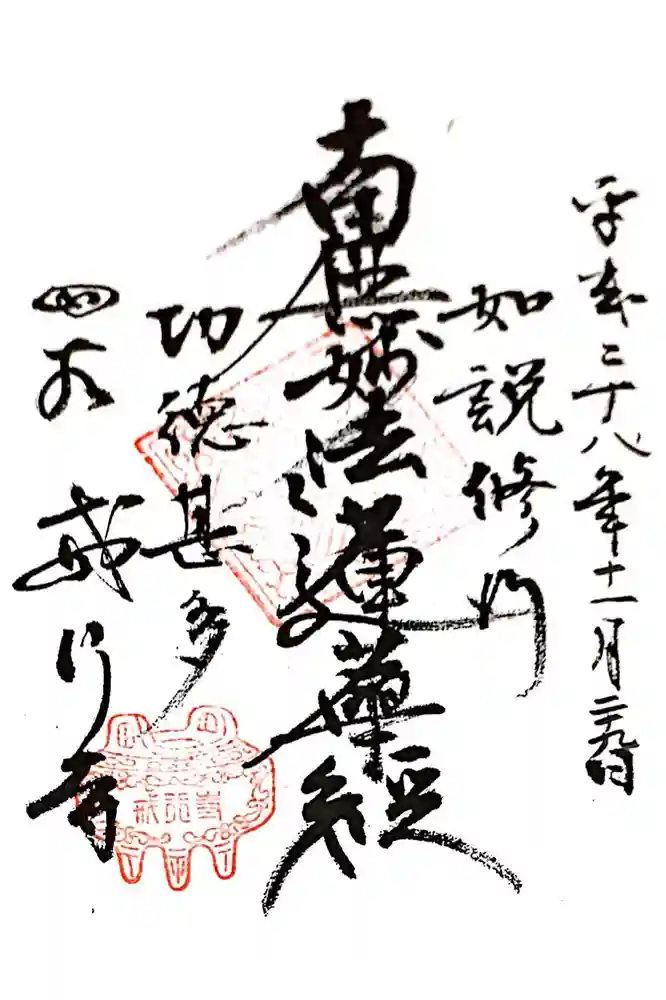 平成二十八年十一月二十九日
如説修行
南無妙法蓮華経
功徳甚多
戒行寺
戒行寺